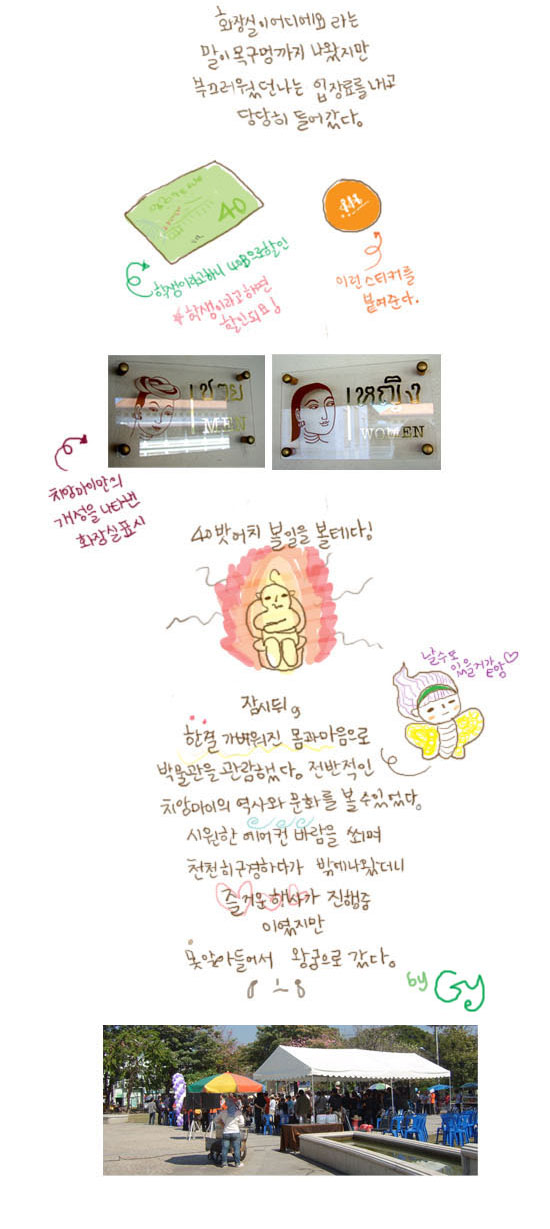 화장실이어디에요 라는
말이 목구멍까지 나왔지만
부끄러웠던나는 입장료를내고
당당히 들어갔다.
40
학생이라고하니 40B으로할인
*학생이라고하면
할인되요!
이런스티커를
붙여준다.
ชาย
MEN
หญิง
WOMEN
치앙마이만의
개성을 나타낸
화장실표시
40밧어치 볼일을 볼테다!
날수도
있을거가탕♡
잠시뒤
한결 가벼워진 몸과마음으로
박물관을 관람했다. 전반적인
치앙마이의 역사와 문화를 볼수있었다.
시원한 에어컨 바람을 쐬며
천천히구경하다가 밖에나왔더니
즐거운행사가 진행중
이였지만
못알아들어서 왕궁으로 갔다.
by Gy